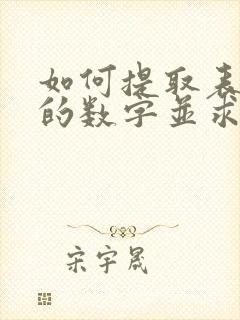 如何提取表
的数字并求
宋宇晟